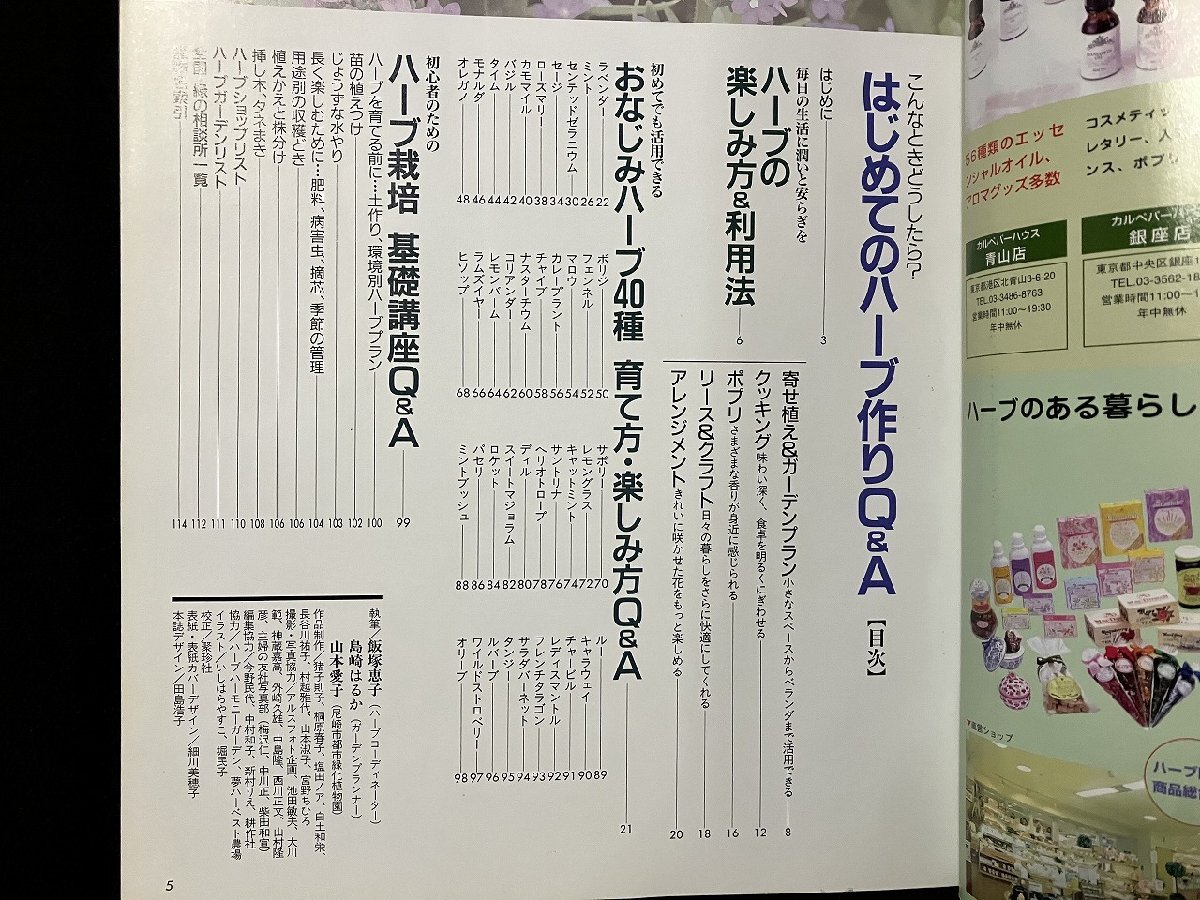 こんなときどうしたら?
はじめてのハーブ作りQ&A
[目次]
はじめに 3
毎日の生活に潤いと安らぎを
ハーブの
楽しみ方&利用法 6
寄せ植え&ガーデンプラン 小さなスペースから、ベランダまで活用できる 8
クッキング 味わい深く、食卓を明るくにぎわせる 12
ポプリ さまざまな香りが身近に感じられる 16
リース&クラフト 日々の暮らしをさらに快適にしてくれる 18
アレンジメント きれいに咲かせた花をもっと楽しめる 20
初めてでも活用できる
おなじみハーブ40種 育て方・楽しみ方Q&A 21
ラベンダー 22
ミント 26
センテッドゼラニウム 30
セージ 34
ローズマリー 38
カモマイル 40
バジル 42
タイム 44
モナルダ 46
オレガノ 48
ボリジ 50
フェンネル 52
マロウ 54
カレープラント 56
チャイブ 58
ナスターチウム 60
コリアンダー 62
レモンバーム 64
ラムズイヤー 66
ヒソップ 68
サボリー 70
レモングラス 72
キャットミント 74
サントリナ 76
ヘリオトロープ 78
ディル 80
スイートマジョラム 82
ロケット 84
パセリ 86
ミントブッシュ 88
ルー 89
キャラウェイ 90
チャービル 91
レディスマントル 92
フレンチタラゴン 93
サラダバーネット 94
タンジー 95
ルバーブ 96
ワイルドストロベリー 97
オリーブ 98
初心者のための
ハーブ栽培 基礎講座Q&A 99
ハーブを育てる前に…土作り、環境別ハーブプラン 100
苗の植えつけ 102
じょうずな水やり 103
長く楽しむために…肥料、病害虫、摘芯、季節の管理 104
用途別の収穫どき 106
植えかえと株分け 106
挿し木、タネまき 108
ハーブショップリスト 110
ハーブガーデンリスト 111
全国 緑の相談所一覧 112
114
執筆/飯塚恵子(ハーブコーディネーター)
島崎はるか(ガーデンプランナー)
山本愛子(尼崎市都市緑化植物園)
作品制作/猪子則子、桐原春子、塩田ノア、白土和栄、
長谷川祐子、村越雅代、山本淑子、宮野ちひろ
撮影・写真協力/アルスフォト企画、池田敏夫、大川
範、神蔵嘉高、外崎久雄、中島隆、西川正文、山村隆
彦、主婦の友社写真部(梅沢仁、中川正、柴田和宣)
編集協力/今野民代、中村和子、新村リえ、耕作社
協力/ハーブハーモニーガーデン、夢ハーベスト農場
イラスト/いしはらやすこ、堀晃子
校正/聚珍社
表紙・表紙カバーデザイン/細川美穂子
本誌デザイン/田島浩子
5
56種類のエッセ
ンシャルオイル、
アロマグッズ多数
コスメティッ
レタリー、人
ンス、ポプリ
カルペパーハウス
青山店
東京都港区北青山3-6-20
TEL.03-3486-8763
営業時間11:00〜19:30
年中無休
カルペパーハ
銀座店
東京都中央区銀座
TEL.03-3562-18
営業時間11:00〜1
年中無休
ハーブのある暮らし
直営ショップ
ハーブ
商品総